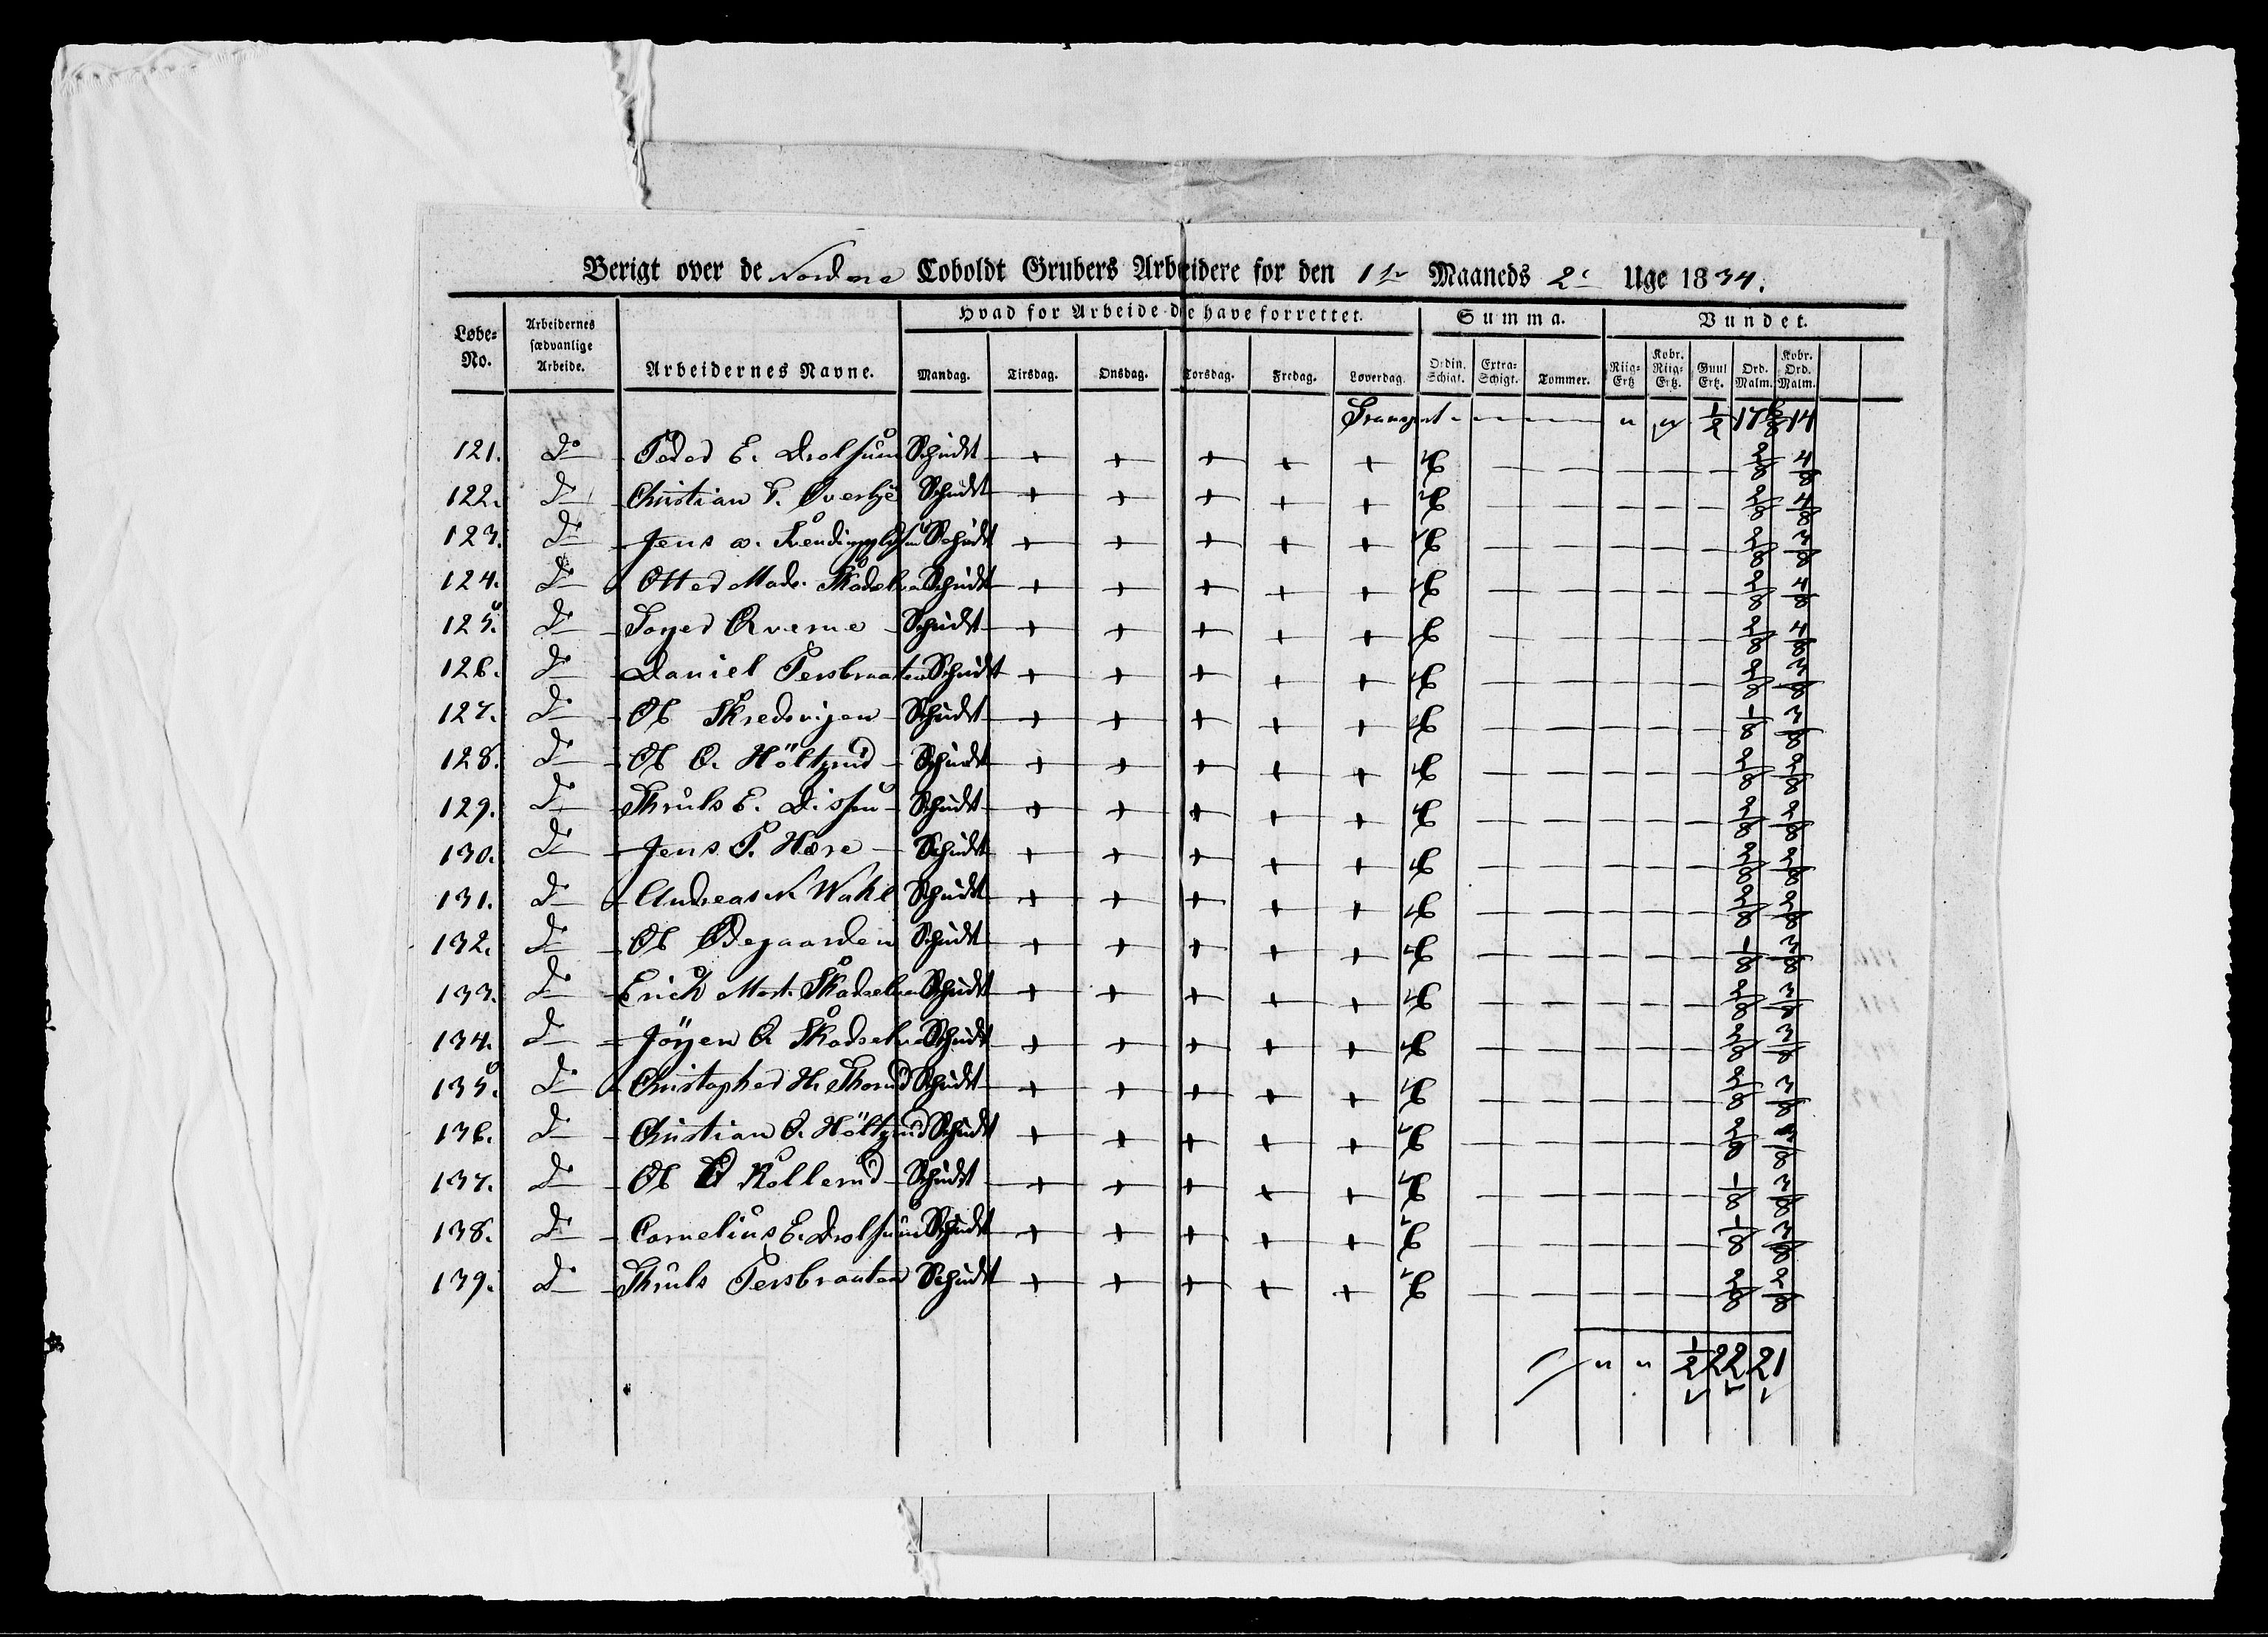 Berigt over de Nordre Coboldt Grubers Arbeidere for den 1te Maaneds 2e Uge 1834.
Løbe-No. Arbeidernes sædvanlige Arbeide. Arbeidernes Navne. Hvad for Arbeide de have forrettet. Summa. Vundet.
Mandag. Tirsdag. Onsdag. Torsdag. Fredag. Løverdag. Ordin. Schigt. Extra-Schigt. Tommer. Riig-Ertz Kobr. Riig-Ertz. Guul Ertz. Ord. Malm. Kobr. Ord. Malm.
Transport - — — " " 1/2 17 14
121. do Peder E. Drolsum Schidt + + + + + 6 — — — — — 2/8 4/8
122. do Christian P. Overbye Schidt + + + + + 6 — — — — — 2/8 4/8
123. do Jens Schidt + + + + + 6 — — — — — 2/8 3/8
124. do Otter Mads. Skodselven Schidt + + + + + 6 — — — — — 2/8 4/8
125. do Torger Qverne Schidt + + + + + 6 — — — — — 2/8 4/8
126. do Daniel Persbraaten Schidt + + + + + 6 — — — — — 2/8 3/8
127. do Ol Skredsvigen Schidt + + + + + 6 — — — — — 1/8 3/8
128. do Ol O. Høltzrud Schidt + + + + + 6 — — — — — 2/8 2/8
129. do Thruls E. Dissen Schidt + + + + + 6 — — — — — 2/8 2/8
130. do Jens P. Hære Schidt + + + + + 6 — — — — — 2/8 2/8
131. do Andreas N Wahl Schidt + + + + + 6 — — — — — 2/8 2/8
132. do Ol Ødegaarden Schidt + + + + + 6 — — — — — 1/8 3/8
133. do Erich Mort. Skodselven Schidt + + + + + 6 — — — — — 2/8 3/8
134. do Jörgen O Skodselven Schidt + + + + + 6 — — — — — 2/8 3/8
135. do Christopher H. Thorud Schidt + + + + + 6 — — — — — 2/8 3/8
136. do Christian O. Høltzrud Schidt + + + + + 6 — — — — — 2/8 3/8
137. do Ol O Kollerud Schidt + + + + + 6 — — — — — 1/8 3/8
138. do Cornelius E. Drolsum Schidt + + + + + 6 — — — — — 1/8 3/8
139. do Thruls Persbraaten Schidt + + + + + 6 — — — — — 2/8 2/8
" " 1/2 22 21